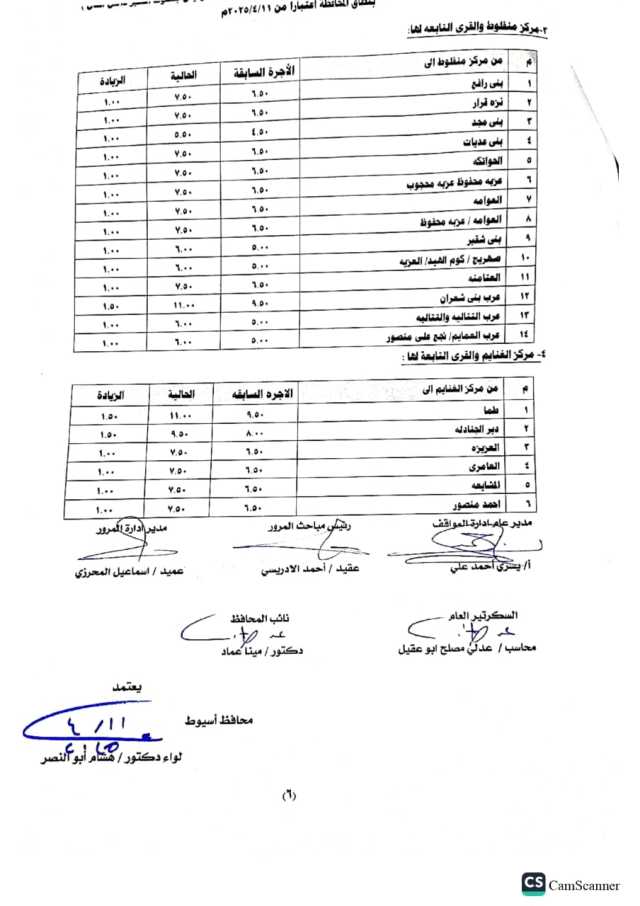 بنطاق المحافظة اعتباراً من ٢٠٢٥/٤/١١م
٣-مركز منفلوط والقرى التابعه لها:
م من مركز منفلوط الى الأجرة السابقة الحالية الزيادة
١ بنى رافع ٦.٥٠ ٧.٥٠ ١.٠٠
٢ نزه قرار ٦.٥٠ ٧.٥٠ ١.٠٠
٣ بنى مجد ٤.٥٠ ٥.٥٠ ١.٠٠
٤ بنى عديات ٦.٥٠ ٧.٥٠ ١.٠٠
٥ الحواتكه ٦.٥٠ ٧.٥٠ ١.٠٠
٦ عزبه محفوظ عزبه محجوب ٦.٥٠ ٧.٥٠ ١.٠٠
٧ العوامه ٦.٥٠ ٧.٥٠ ١.٠٠
٨ العوامه / عزبه محفوظ ٦.٥٠ ٧.٥٠ ١.٠٠
٩ بنى شقير ٥.٠٠ ٦.٠٠ ١.٠٠
١٠ صهريج / كوم الهيد/ العزبه ٥.٠٠ ٦.٠٠ ١.٠٠
١١ العتامنه ٦.٥٠ ٧.٥٠ ١.٠٠
١٢ عرب بنى شعران ٩.٥٠ ١١.٠٠ ١.٥٠
١٣ عرب القتاليه والقتاليه ٥.٠٠ ٦.٠٠ ١.٠٠
١٤ عرب العمايم/ نجع على منصور ٥.٠٠ ٦.٠٠ ١.٠٠
٤- مركز الغنايم والقرى التابعة لها :
م من مركز الغنايم الى الاجره السابقه الحالية الزيادة
١ طما ٩.٥٠ ١١.٠٠ ١.٥٠
٢ دير الجنادله ٨.٠٠ ٩.٥٠ ١.٥٠
٣ العزيزه ٦.٥٠ ٧.٥٠ ١.٠٠
٤ العامرى ٦.٥٠ ٧.٥٠ ١.٠٠
٥ المشايعه ٦.٥٠ ٧.٥٠ ١.٠٠
٦ احمد منصور ٦.٥٠ ٧.٥٠ ١.٠٠
مدير عام ادارة المواقف رئيس مباحث المرور مدير إدارة المرور
أ/ يسرى أحمد علي عقيد / أحمد الادريسي عميد / اسماعيل المحرزي
السكرتير العام نائب المحافظ
محاسب / عدلي مصلح ابو عقيل دكتور / مينا عماد
يعتمد
محافظ أسيوط
٤/١١
لواء دكتور / هشام أبو النصر
(٦)
CS CamScanner